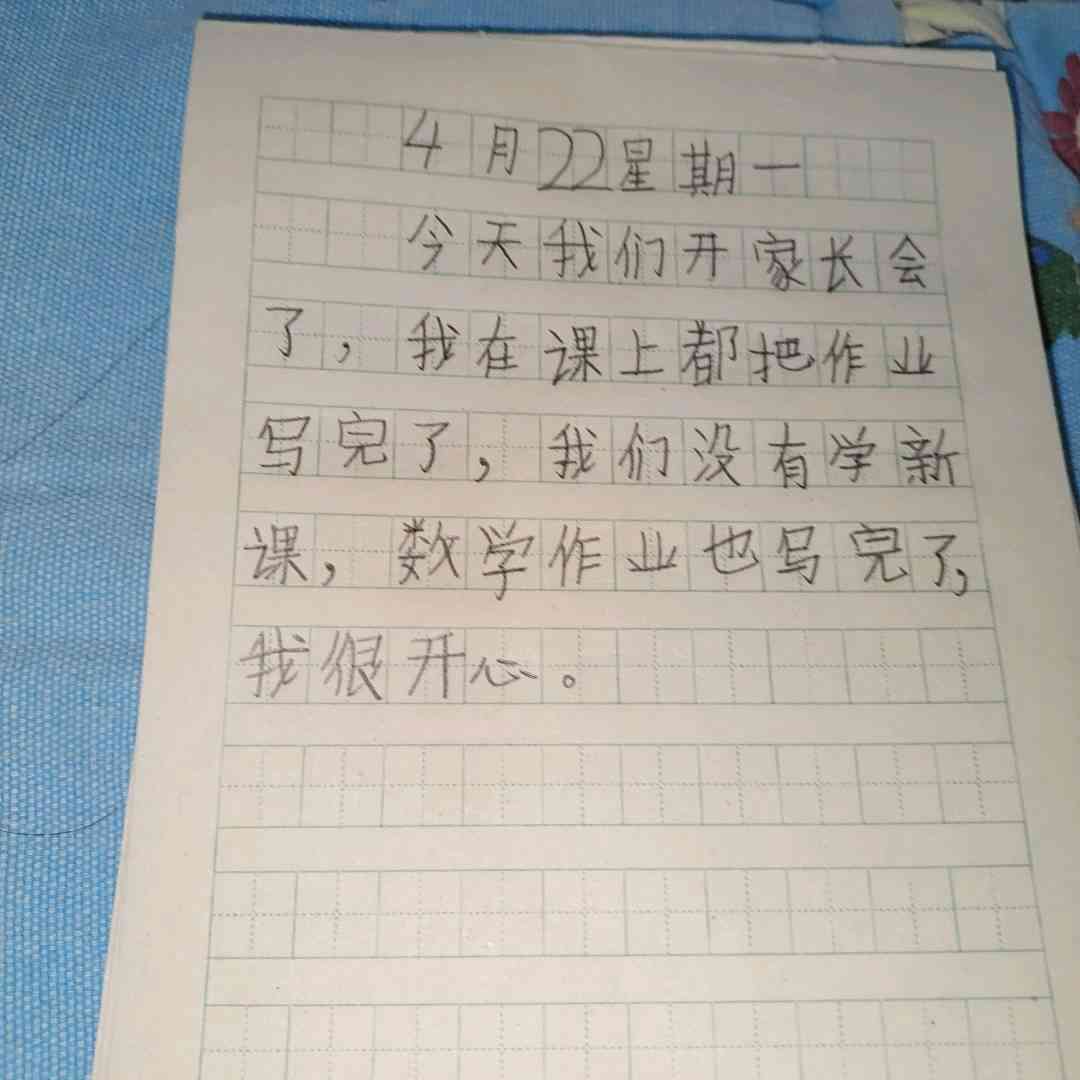 4月22星期一
今天我们开家长会
了，我在课上都把作业
写完了，我们没有学新
课，数学作业也写完了，
我很开心。